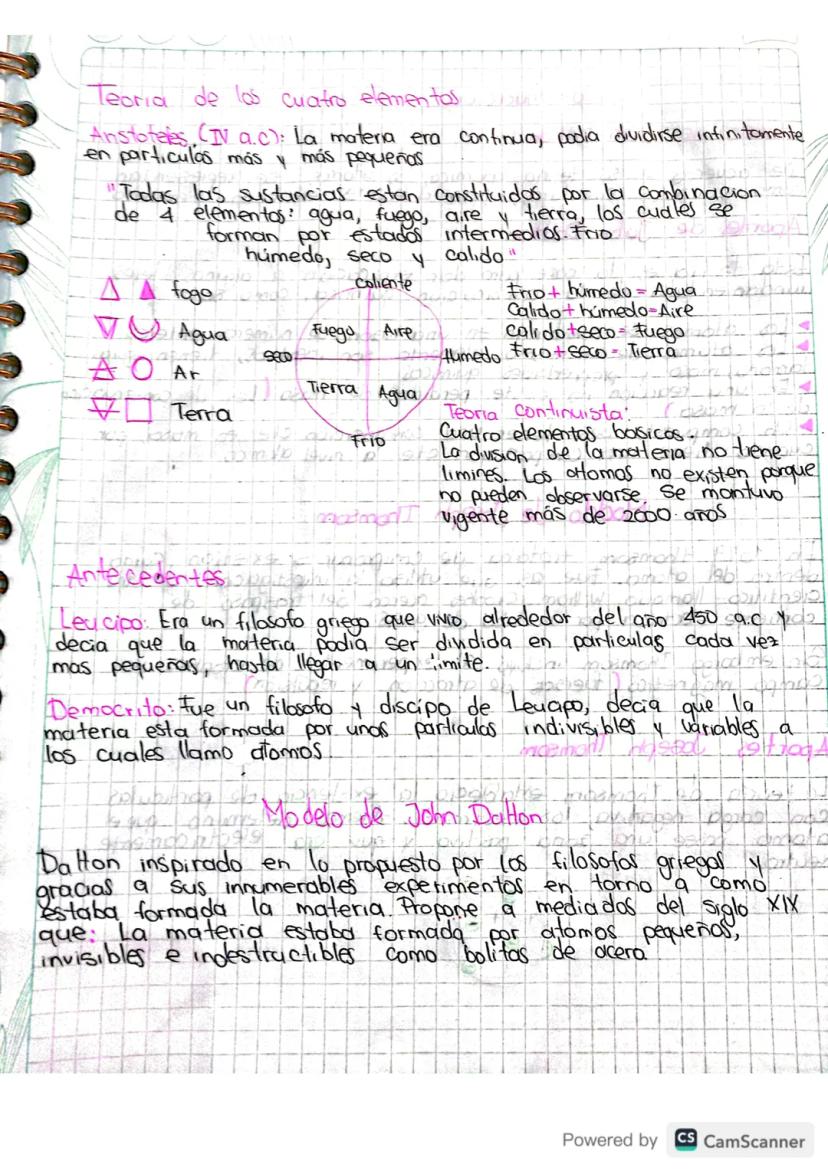 Teoria de los cuatro elementos
Aristoteles (IV a.c): La materia era continua, podia dividirse infinitamente
en particulas más y más pequeñas
"Todas las sustancias estan constituidos por la combinacion
de 4 elementos: agua, fuego, aire y tierra, los cuales se
forman por estados intermedios. Frio
húmedo, seco y calido"
fogo
Agua
Ar
Terra
Caliente
Fuego Aire
seco Humedo
Tierra Agua
Frio
Frio + húmedo = Agua
Calido + húmedo = Aire
calido + seco = Fuego
Frio + seco = Tierra
Teoria continuista:
Cuatro elementos basicos.
La division de la materia no tiene
limines. Los atomos no existen porque
no pueden observarse. Se mantuvo
vigente más de 2000 años
Antecedentes
Leucipo: Era un filosofo griego que vivio alrededor del año 450 a.c y
decia que la materia podia ser dividida en particulas cada vez
mas pequeñas, hasta llegar a un limite.
Democrito: Fue un filosofo y discipo de Leucipo, decia que la
materia esta formada por unas particulas indivisibles y variables a
los cuales llamo atomos.
Modelo de John Dalton
Dalton inspirado en lo propuesto por los filosofos griegos y
gracias a sus innumerables experimentos en torno a como
estaba formada la materia. Propone a mediados del siglo XIX
que: La materia estaba formada por atomos pequeños,
invisibles e indestructibles como bolitas de acera
Powered by CS CamScanner